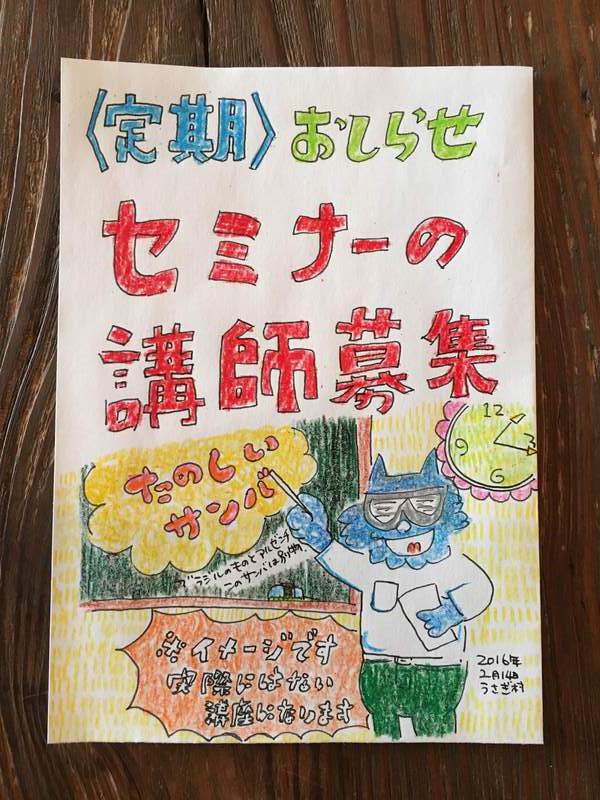 〈定期〉おしらせ
セミナーの
講師募集
たのしい
サンバ
ブラジルのものとアルゼンチ
ンのサンバは別物
12
3
6
9
※イメージです
実際にはない
講座になります
2016年
2月14日
うさぎ村